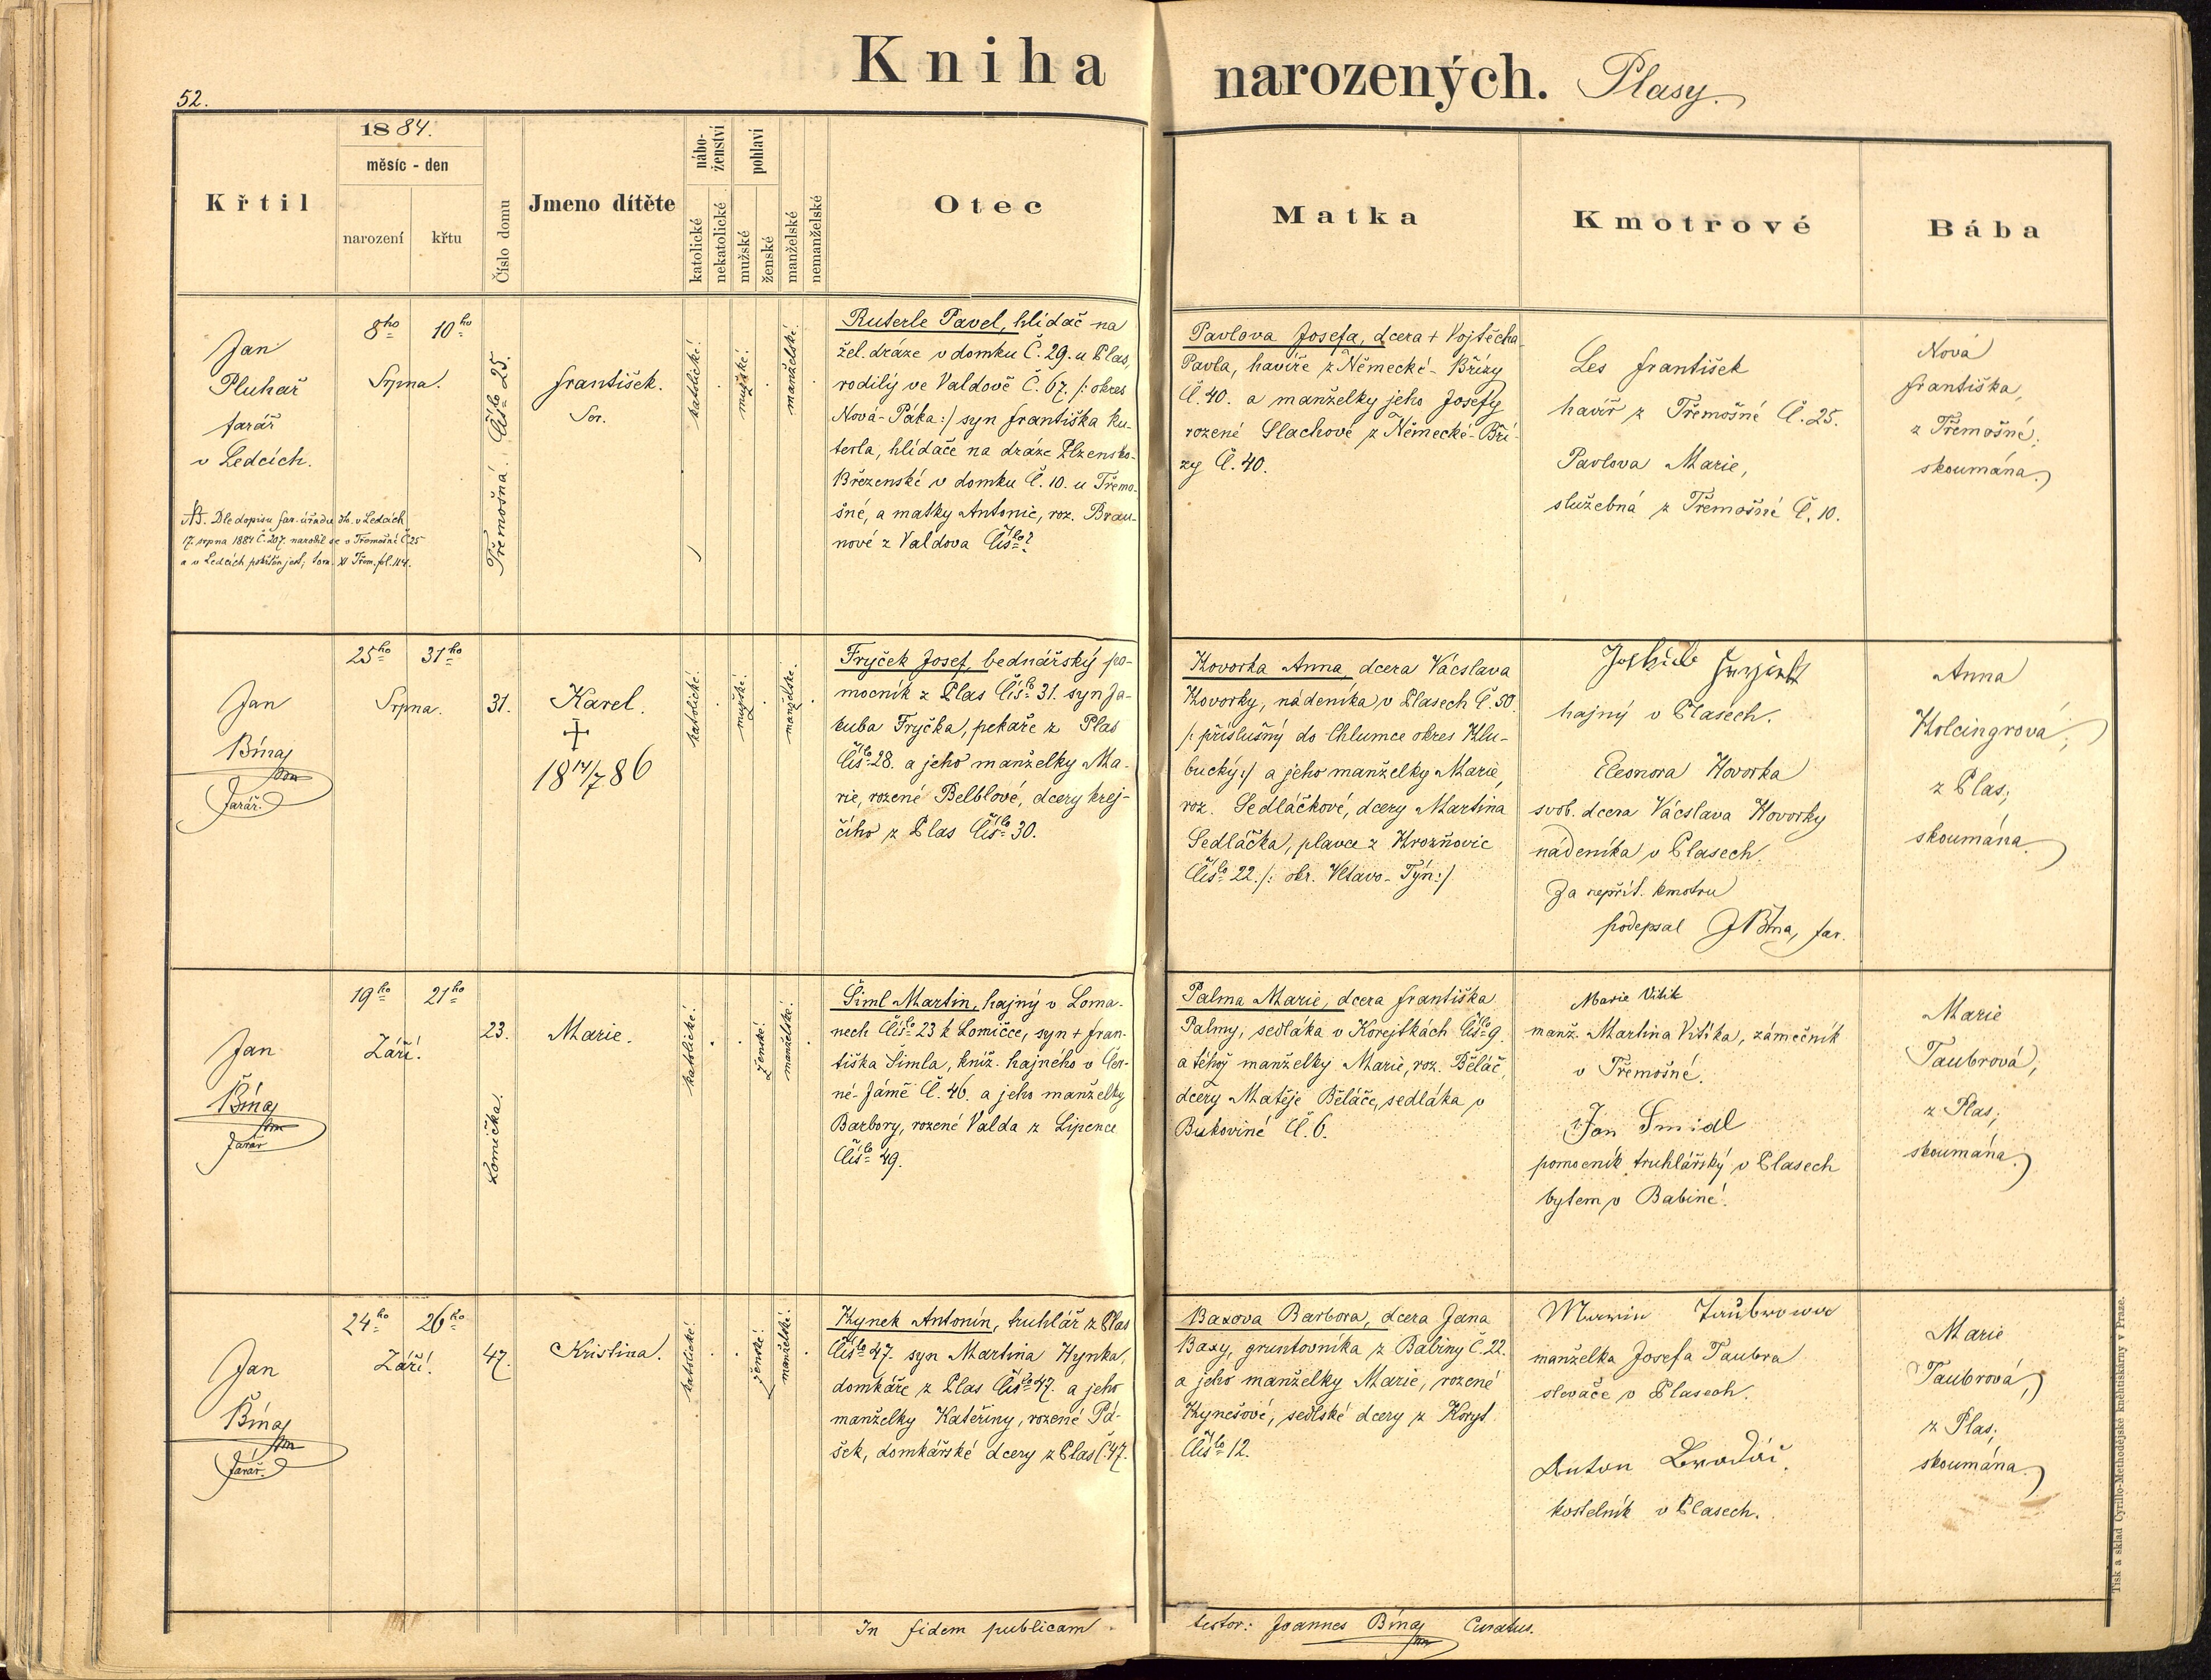 Kniha narozených. Plasy.
52.
1884.
měsíc - den
Křtil
narození
křtu
Číslo domu
Jmeno dítěte
nábo-
ženství
katolické
nekatolické
pohlaví
mužské
ženské
manželské
nemanželské
Otec
Matka
Kmotrové
Bába
Jan
Pluhař
farář
v Ledcích.
NB. Dle dopisu far. úřadu v Ledcích
17. srpna 1884 Č. 207. narodil se v Třemošné Č. 25
a v Ledcích pokřtěn jest, tom. XI Třem. fol. 114.
8ho
10ho
Srpna.
Třemošná. Číslo 25.
František.
Sor.
katolické.
mužské.
manželské.
Ruterle Pavel, hlídač na
žel. dráze v domku Č. 29. u Plas,
rodilý ve Valdově Č. 67. /: okres
Nová-Páka :/ syn Františka Ru-
terla, hlídače na dráze Plzensko-
Březenské v domku Č. 10. u Třemo-
šné, a matky Antonie, roz. Brau-
nové z Valdova Číslo?
Pavlova Josefa, dcera + Vojtěcha
Pavla, havíře z Německé-Břízy
Č. 40. a manželky jeho Josefy
rozené Slachové z Německé-Bří-
zy Č. 40.
Les František
havíř z Třemošné Č. 25.
Pavlova Marie,
služebná z Třemošné Č. 10.
Nová
Františka,
z Třemošné;
skoumána.
Jan
Bína
farář.
25ho
31ho
Srpna.
31.
Karel.
+
18 14/7 86
katolické.
mužské.
manželské.
Fryček Josef, bednářský po-
mocník z Plas Číslo 31. syn Ja-
kuba Fryčka, pekaře z Plas
Číslo 28. a jeho manželky Ma-
rie, rozené Belblové, dcery krej-
čího z Plas Číslo 30.
Hovorka Anna, dcera Vácslava
Hovorky, nádeníka v Plasech Č. 50.
/: příslušný do Chlumce okres Hlu-
bucký :/ a jeho manželky Marie,
roz. Sedláčkové, dcery Martina
Sedláčka, plavce z Hrozňovic
Číslo 22. /: okr. Vltavo-Týn :/
hajný v Plasech.
Eleonora Hovorka
svob. dcera Vácslava Hovorky
nádeníka v Plasech.
Za nepřít. kmotru
podepsal J Bína, far.
Anna
Holcingrová;
z Plas;
skoumána.
Jan
Bína
farář
19ho
21ho
Září.
23.
Lomička.
Marie.
katolické.
ženské.
manželské.
Šiml Martin, hajný v Loma-
nech Číslo 23 k Lomičce, syn + Fran-
tiška Šimla, kníž. hajného v Čer-
né-Jámě Č. 46. a jeho manželky
Barbory, rozené Valda z Lipence
Číslo 49.
Palma Marie, dcera Františka
Palmy, sedláka v Korejtkách Číslo 9.
a téhož manželky Marie, roz. Běláč,
dcery Matěje Běláče, sedláka v
Bukovině Č. 6.
Marie Vitik
manž. Martina Vitíka, zámečník
v Třemošné.
Jan Šmidl
pomocník truhlářský v Plasech
bytem v Babině.
Marie
Taubrová;
z Plas;
skoumána.
Jan
Bína
farář.
24ho
26ho
Září.
47.
Kristina.
katolické.
ženské.
manželské.
Hynek Antonín, truhlář z Plas
Číslo 47. syn Martina Hynka,
domkáře z Plas Číslo 47. a jeho
manželky Kateřiny, rozené Pá-
šek, domkářské dcery z Plas Č. 47.
Baxova Barbora, dcera Jana
Baxy, gruntovníka z Babiny Č. 22.
a jeho manželky Marie, rozené
Hynešové, sedlské dcery z Koryt
Číslo 12.
manželka Josefa Taubra
slevače v Plasech.
Anton
kostelník v Plasech.
Marie
Taubrová;
z Plas;
skoumána.
In fidem publicam testor: Joannes Bína Curatus.
Tisk a sklad Cyrillo-Methodějské knihtiskárny v Praze.